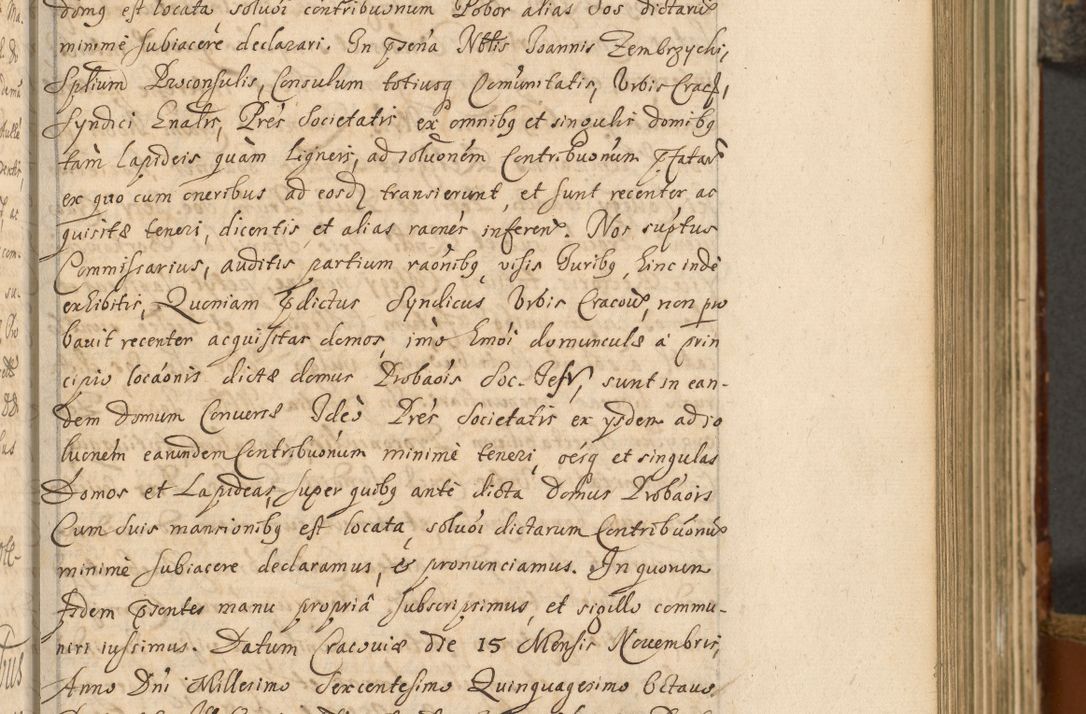 domꝯ est locata soluõi contribuonum Pobor alias dos dictarũ
minimè subiacere declarari. In p̃sẽna Nblis Joannis Zembrzychi,
Sptlium Proconsulis, Consulum totiusqꝫ Com̃unitatis, Urbis Crac,
Syndici Enatis, Pres Societatis ex omnibꝯ et singulis domibꝯ
tàm lapideis quàm ligneis, ad soluonẽm Contribuonum p̃fatarũ
ex quo cum oneribus ad eosd transierunt, et sunt recenter ac
quisitæ teneri, dicentis et alias raõnes inferen. Nos suptus
Commissarius, auditis partium raõnibꝯ, visis Juribꝯ, hinc indè
exhibitis, Quoniam p̃dictus Syndicus Urbis Cracouĩ, non pro
bauit recenter acquisitas domos, imò Emõi domunculæ à prin
cipio locaõnis dictæ domus Probaõis Soc. Jesu, sunt in ean-
dem domum Conuersæ Ideò Pres Societatis ex ysdem ad so
luonẽm earundem Contribuõnum minimè teneri, oẽsqꝫ et singulas
Domos et Lapideas, super quibꝯ antè dicta domus Probaõis
Cum suis mansionibꝯ est locata, soluõi dictarum Contribuõnũ
minimè subiacere declaramus, & pronunciamus. In quorum
fidem p̃sentes manu propriâ subscripsimus, et sigillo commu-
niri iussimus. Datum Cracouiæ die 15 Mensis Nouembris,
Anno Dñi Millesimo Sexcentesimo Quinquagesimo Octauo